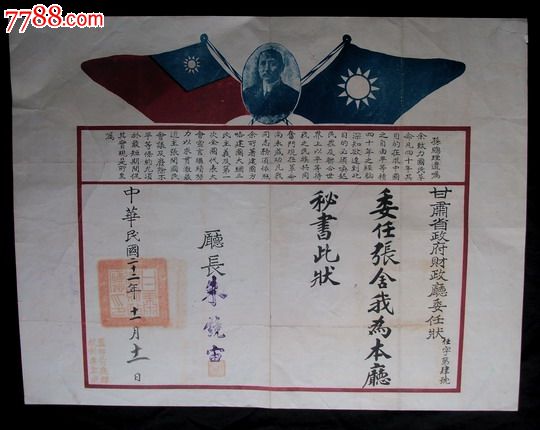 7788.com
中国收藏热线
孫總理遺囑
余致力國民革
命凡四十年其
目的在求中國
之自由平等積
四十年之經驗
深知欲達到此
目的必須喚起
民眾及聯合世
界上以平等待
我之民族共同
奮鬥現在革命
尚未成功凡我
同志務須依照
余所著建國方
略建國大綱三
民主義及第一
次全國代表大
會宣言繼續努
力以求貫澈最
近主張開國民
會議及廢除不
平等條約尤須
於最短期間促
其實現是所至
囑
甘肅省政府財政廳委任狀
字第肆號
委任張含我為本廳
秘書此狀
廳長朱鏡宙
中華民國二十二年十一月十一日